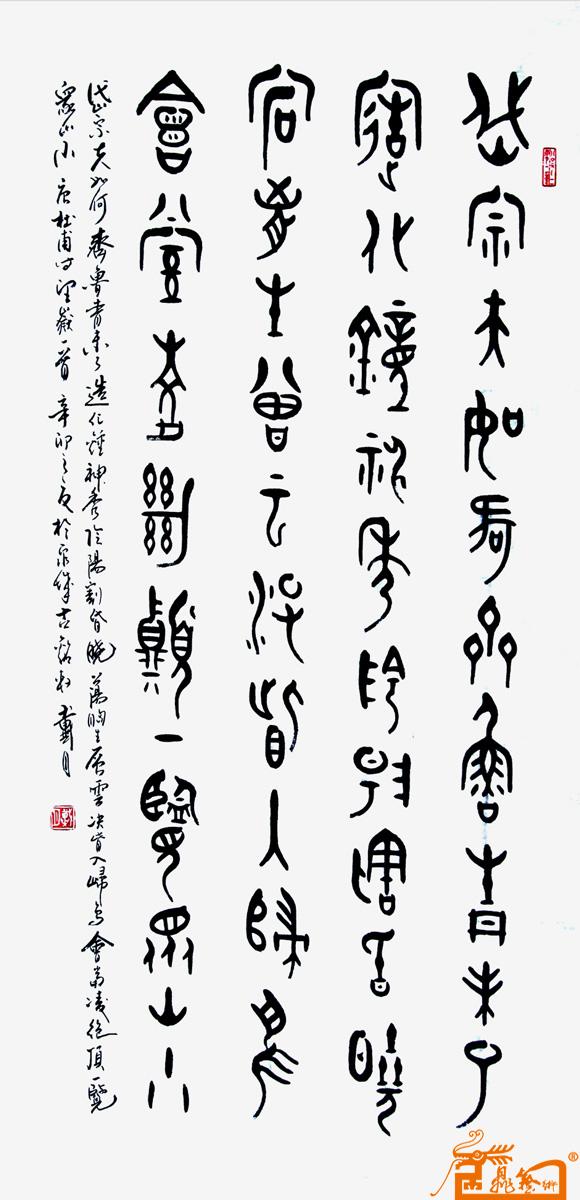 岱宗夫如何齊魯青未了
造化鐘神秀陰陽割昏曉
宕匈生曾云決眥入歸鳥
會尚夌絕顛一覽眾山小
岱宗夫如何齊魯青未了造化鍾神秀陰陽割昏曉蕩胸生層雲決眥入歸鳥會當凌絕頂一覽
眾山小 唐杜甫詩望嶽一首 辛卯之夏於泉城古 戴月